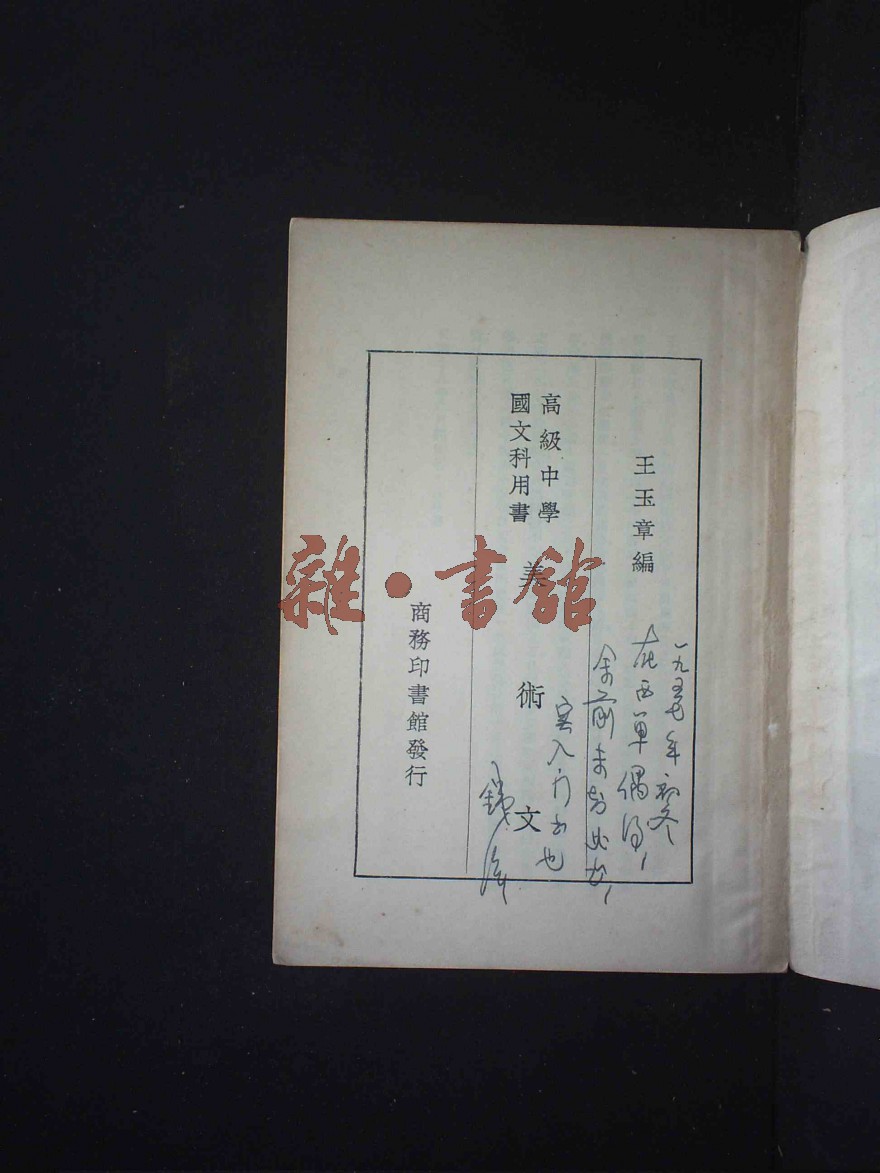 王玉章編
高級中學
國文科用書
美術文
商務印書館發行
一九五七年初冬
在西單偶得、
余前未知此書、
实入门书也
雜·書館